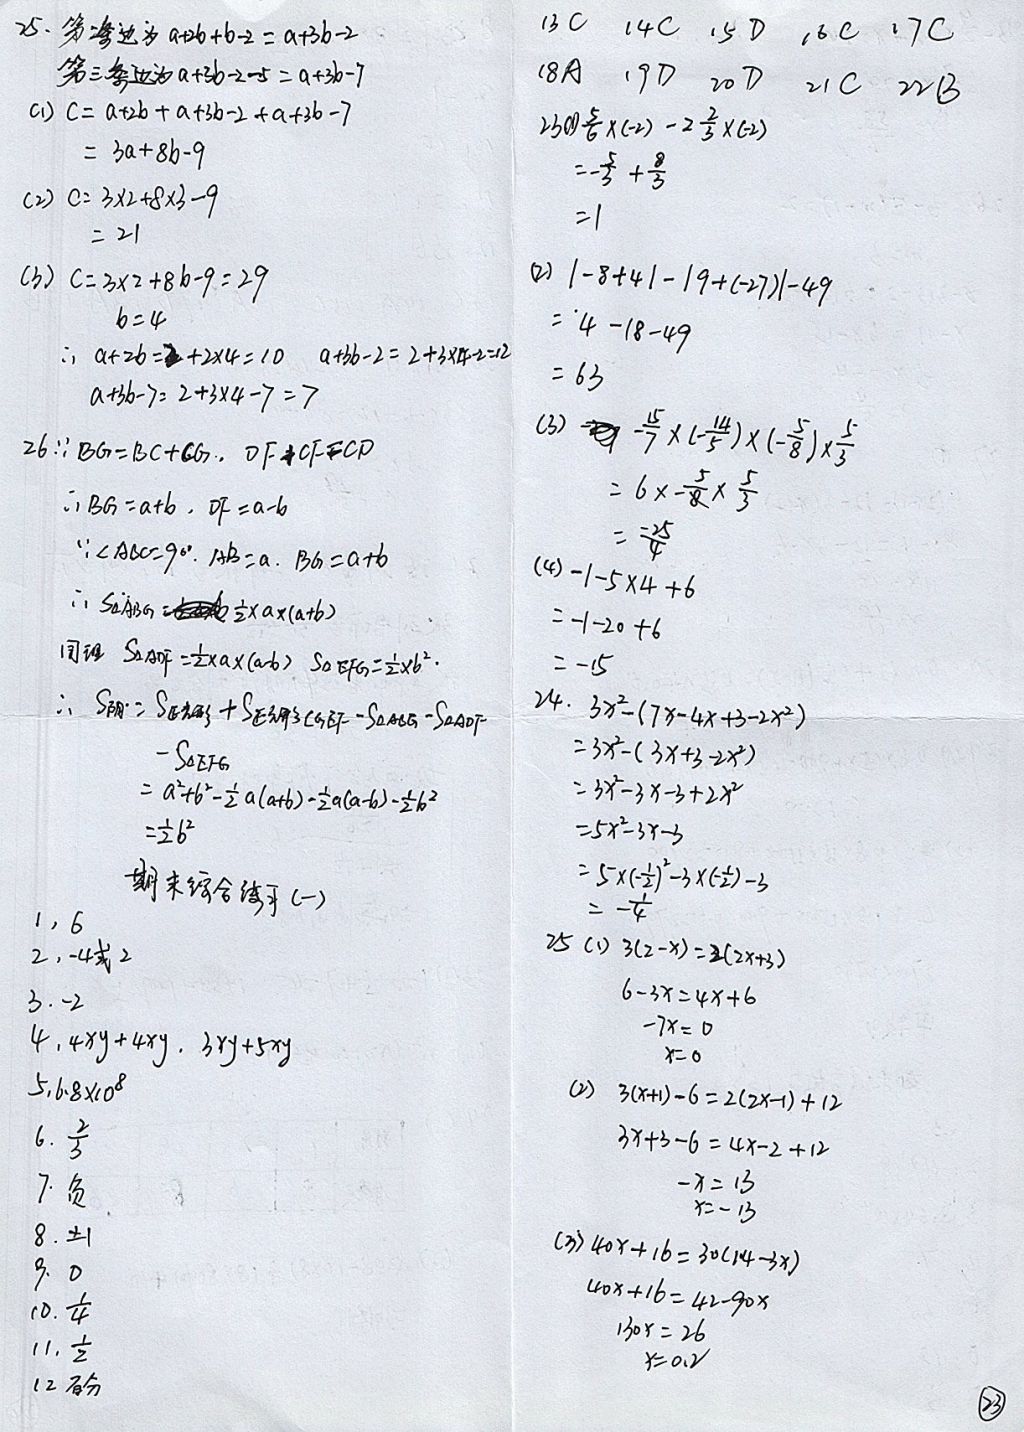 25. 第二条边为 a+2b+b-2=a+3b-2
第三条边为 a+3b-2-5=a+3b-7
(1) C=a+2b+a+3b-2+a+3b-7
=3a+8b-9
(2) C=3×2+8×3-9
=21
(3) C=3×2+8b-9=29
b=4
∴ a+2b=2+2×4=10 a+3b-2=2+3×4-2=12
a+3b-7=2+3×4-7=7
26 ∵ BG=BC+CG, DF+CF=CD
∴ BG=a+b, DF=a-b
∵ ∠ABC=90°. AB=a. BG=a+b
∴ S△ABG=1/2×a×(a+b)
同理 S△ADF=1/2×a×(a-b) S△EFG=1/2×b².
∴ S阴=S正方形+S正方形CGEF-S△ABG-S△ADF
-S△EFG
=a²+b²-1/2a(a+b)-1/2a(a-b)-1/2b²
=1/2b²
期末综合练习(一)
1, 6
2, -4或2
3. -2
4, 4xy+4xy, 3xy+5xy
5, 6.8×10⁸
6. 2/3
7. 负
8. ±1
9. 0
10. 1/4
11, 1/2
12 百分
13C 14C 15D 16C 17C
18A 19D 20D 21C 22B
23(1) 5/6×(-2)-2 2/3×(-2)
=-5/3+8/3
=1
(2) |-8+4|-|9+(-27)|-49
=4-18-49
=63
(3) -15/7×(-14/5)×(-5/8)×5/3
=6×-5/8×5/3
=-25/4
(4) -1-5×4+6
=-1-20+6
=-15
24. 3x²-(7x-4x+3-2x²)
=3x²-(3x+3-2x²)
=3x²-3x-3+2x²
=5x²-3x-3
=5×(-1/2)²-3×(-1/2)-3
=-1/4
25 (1) 3(2-x)=2(2x+3)
6-3x=4x+6
-7x=0
x=0
(2) 3(x+1)-6=2(2x-1)+12
3x+3-6=4x-2+12
-x=13
x=-13
(3) 40x+16=30(1.4-3x)
40x+16=42-90x
130x=26
x=0.2
23